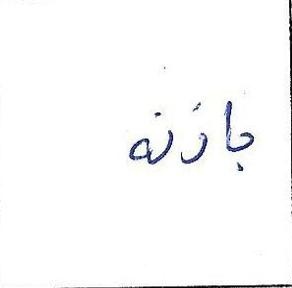 باذنه